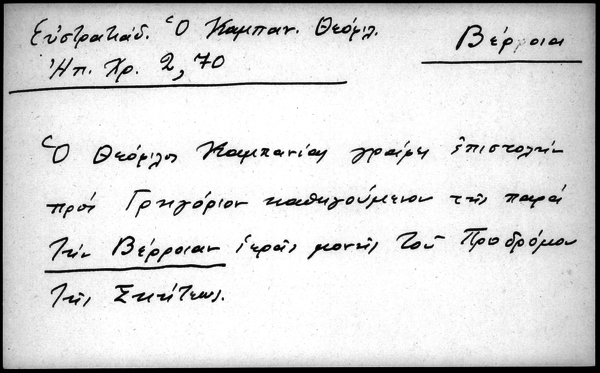 Εὐστρατιάδ. Ὁ Καμπαν. Θεόφιλ.
Βέρροια
Ἠπ. Χρ. 2, 70
Ὁ Θεόφιλος Καμπανίας γράφει ἐπιστολὴν
πρὸς Γρηγόριον καθηγούμενον τῆς παρὰ
τὴν Βέρροιαν ἱερᾶς μονῆς τοῦ Προδρόμου
τῆς Σκήτεως.